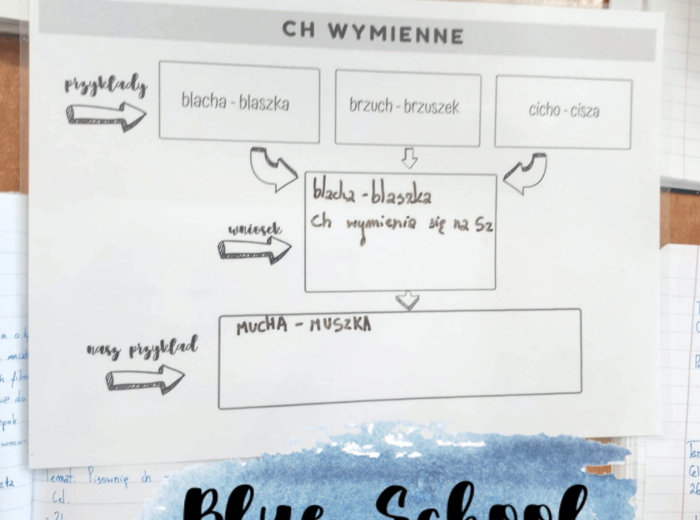 CH WYMIENNE
przykłady
blacha - blaszka
brzuch - brzuszek
cicho - cisza
blacha - blaszka
wniosek
Ch wymienia się na Sz
MUCHA - MUSZKA
nasz przykład
Temat. Pisownia ch
Cel.
Blue School